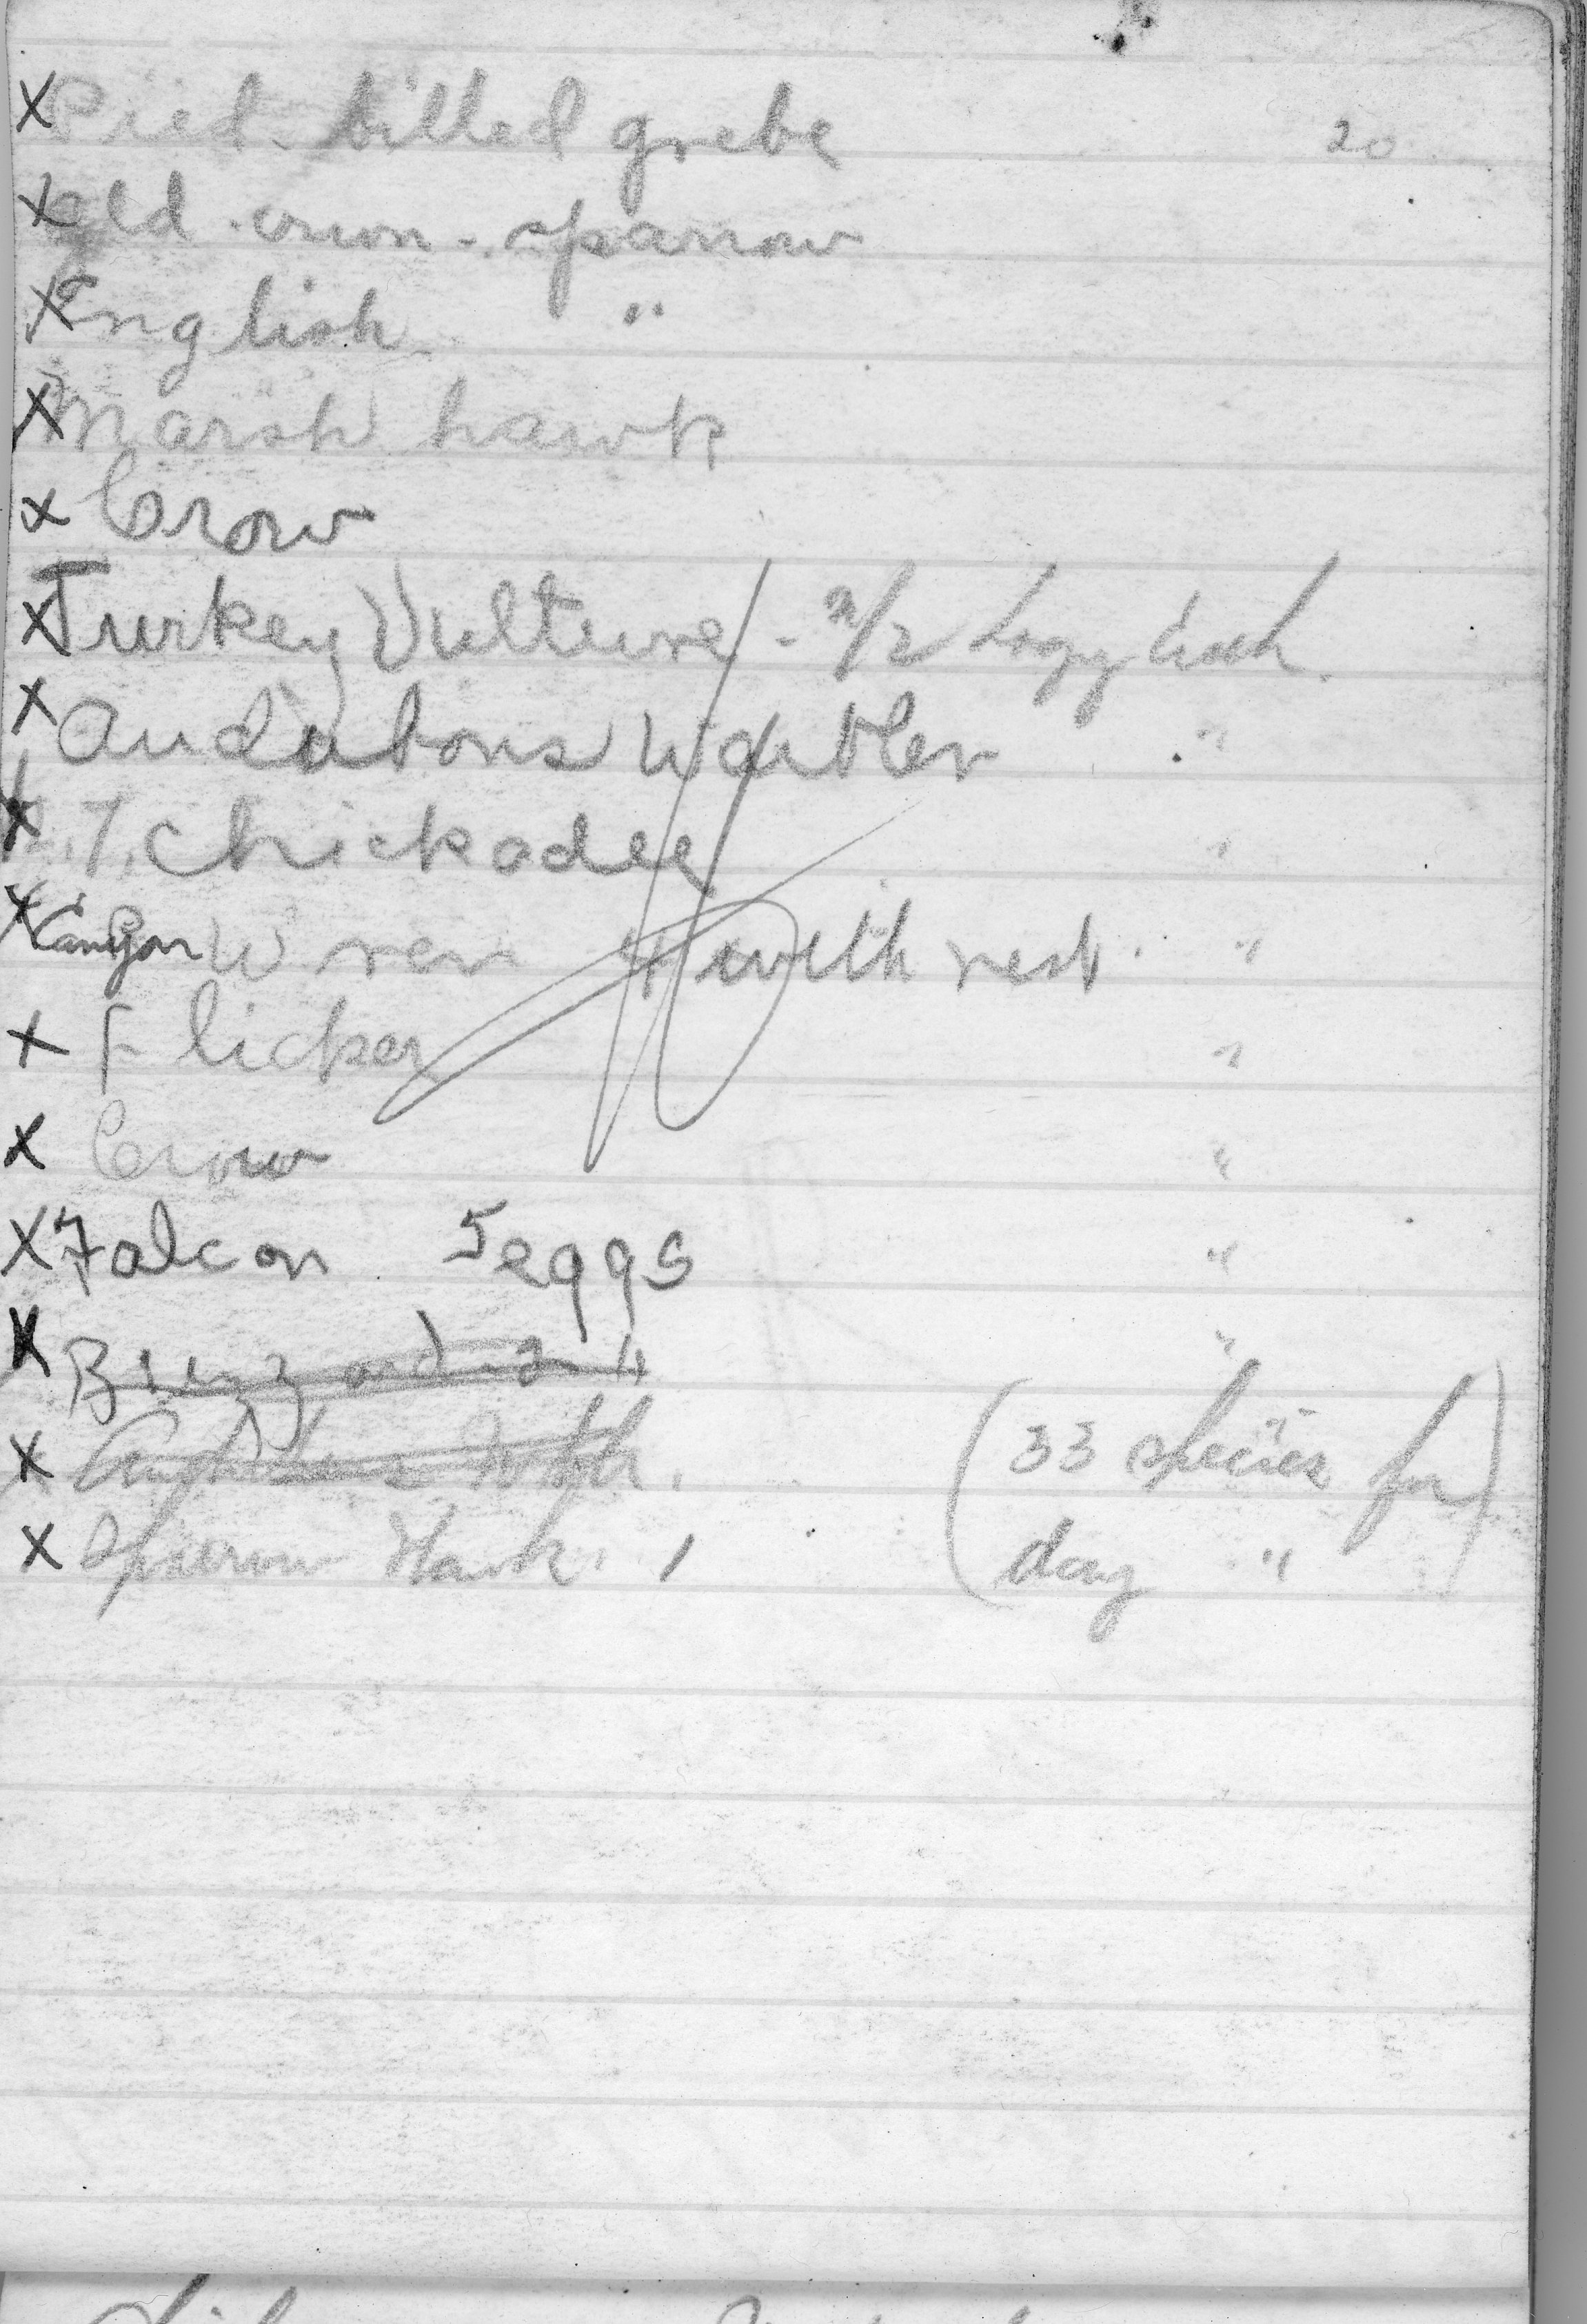 X Pied-billed grebe 20
X Gld. crwn. sparrow
X English "
X Marsh hawk
x Crow
X Turkey Vulture -
X Audubons Warbler "
X Chickadee "
X Canyon Wren 4 with nest. "
X Flicker "
X Crow "
X Falcon 5 eggs "
X Buzzard 2 "
X
X Sparrow Hawk. 1
(33 species for
day ")